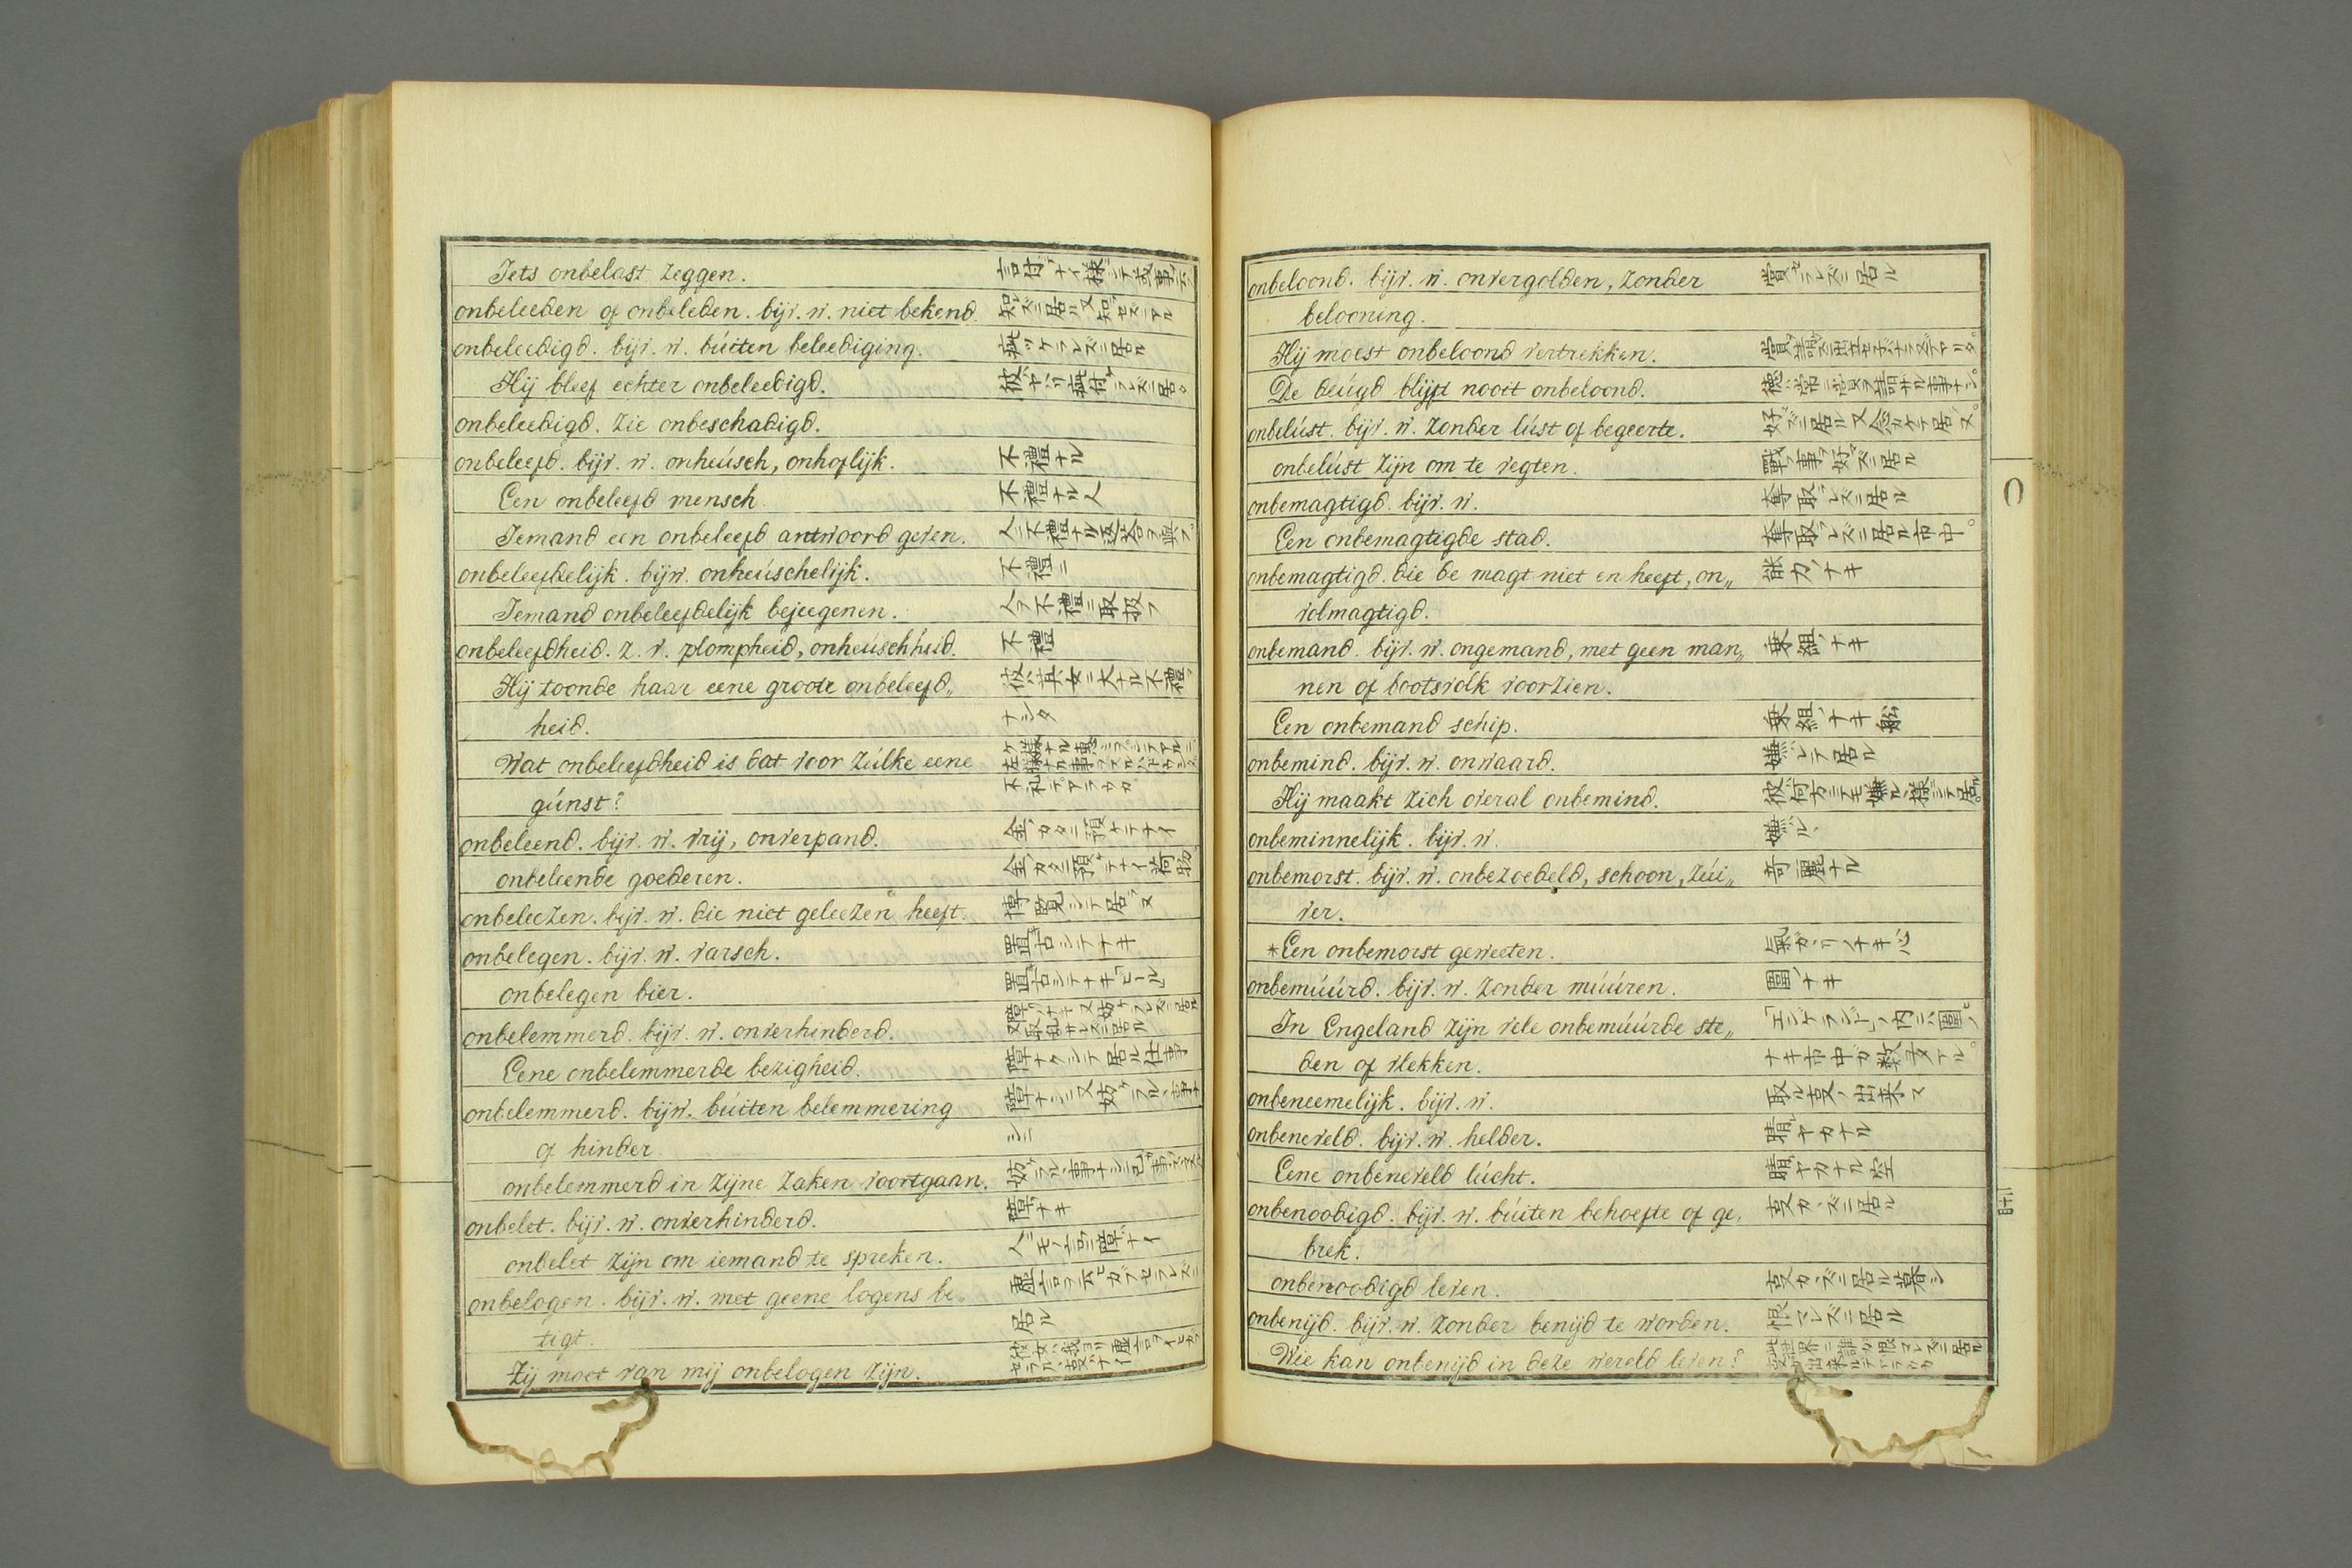 Iets onbelast zeggen.
onbeleeden of onbeleden. bijv. w. niet bekend. 知レズニ居ル又知セズニアル
onbeleedigd. bijv. w. búiten beleediging. 疵ツケラレズニ居ル
Hij bleef echter onbeleedigd.
onbeleedigd. zie onbeschadigd.
onbeleefd. bijv. w. onheúsch, onhoflijk. 不禮ナル
Een onbeleefd mensch. 不禮ナル人
Iemand een onbeleefd antwoord geven. 人ニ不禮ナル返答ヲ與フ。
onbeleefdelijk. bijw. onheúschelijk. 不禮ニ
Iemand onbeleefdelijk bejeegenen. 人ヲ不禮ニ取扱フ
onbeleefdheid. z. v. plompheid, onheúschheid. 不禮
Hij toonde haar eene groote onbeleefd„ 彼ハ其女ニ大ナル不禮ヲ
heid. ナシタ
Wat onbeleefdheid is dat voor zúlke eene
gúnst?
onbeleend. bijv. w. vrij, onverpand. 金ノカタニ預ケテナイ
onbeleende goederen. 金ノカタニ預ケテナイ荷物
onbeleezen. bijv. w. die niet geleezen heeft. 博覧シテ居ヌ
onbelegen. bijv. w. varsch. 置古シテナキ
onbelegen bier. 置古シテナキビール
onbelemmerd. bijv. w. onverhinderd.
Eene onbelemmerde bezigheid. 障ナクシテ居ル仕事
onbelemmerd. bijw. búiten belemmering
of hinder.
onbelemmerd in zijne zaken voortgaan.
onbelet. bijv. w. onverhinderd. 障ナキ
onbelet zijn om iemand te spreken.
onbelogen. bijv. w. met geene logens be„
tigt. 居ル
Zij moet van mij onbelogen zijn.
onbeloond. bijv. w. onvergolden, zonder 賞セラレズニ居ル
belooning.
Hij moest onbeloond vertrekken.
De deúgd blijft nooit onbeloond.
onbelúst. bijv. w. zonder lúst of begeerte.
onbelúst zijn om te vegten. 戰ノ事ヲ好マズニ居ル
onbemagtigd. bijv. w. 奪取ラレズニ居ル
Een onbemagtigde stad. 奪取ラレズニ居ル市中。
onbemagtigd. die de magt niet en heeft, on„
volmagtigd.
onbemand. bijv. w. ongemand, met geen man„ 乗組ノナキ
nen of bootsvolk voorzien.
Een onbemand schip. 乗組ノナキ舩
onbemind. bijv. w. onwaard. 嫌レテ居ル
Hij maakt zich overal onbemind.
onbeminnelijk. bijv. w.
onbemorst. bijv. w. onbezoedeld, schoon, zúi„ 奇麗ナル
ver.
*Een onbemorst geweeten.
onbemúúrd. bijv. w. zonder múúren. 圍ノナキ
In Engeland zijn vele onbemúúrde ste„ 「エンゲランド」ノ内ニハ圍ノ
den of vlekken. ナキ市中ガ数多アル。
onbeneemelijk. bijv. w.
onbeneveld. bijv. w. helder. 晴ヤカナル
Eene onbeneveld lúcht. 晴ヤカナル空
onbenoodigd. bijv. w. búiten behoefte of ge„ 事カヽズニ居ル
brek.
onbenoodigd leven. 事カヽズニ居ル暮シ
onbenijd. bijv. w. zonder benijd te worden. 恨マレズニ居ル
Wie kan onbenijd in deze wereld leven?
O